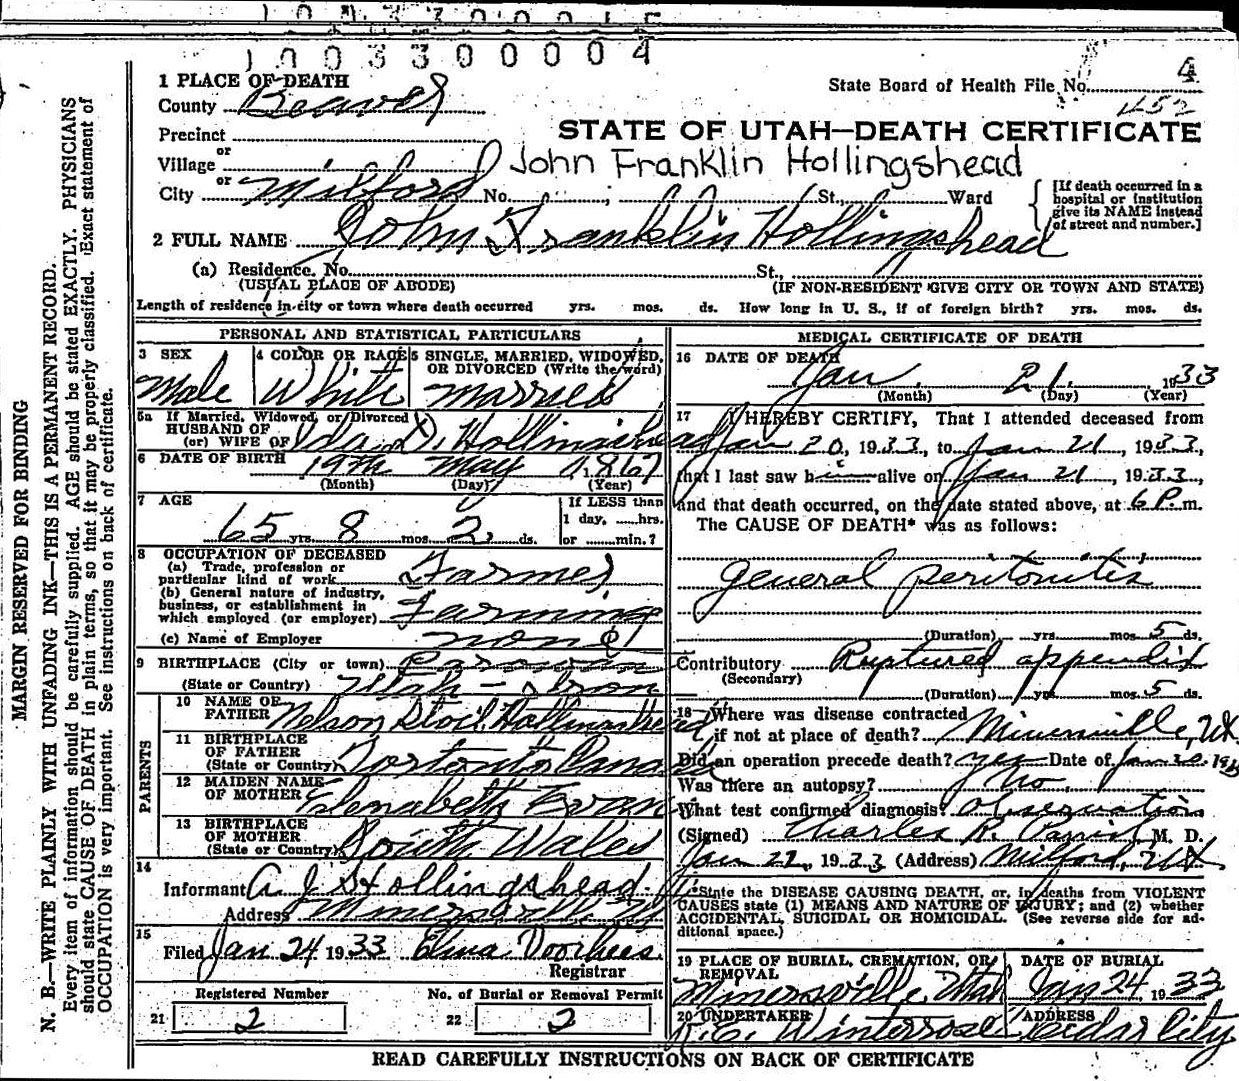 1003300004
1 PLACE OF DEATH
State Board of Health File No. 4
County Beaver
452
Precinct
STATE OF UTAH—DEATH CERTIFICATE
or
Village
John Franklin Hollingshead
or
City Milford No. ; St., Ward
[If death occurred in a hospital or institution give its NAME instead of street and number.]
2 FULL NAME John Franklin Hollingshead
(a) Residence. No. St.,
(USUAL PLACE OF ABODE) (IF NON-RESIDENT GIVE CITY OR TOWN AND STATE)
Length of residence in city or town where death occurred yrs. mos. ds. How long in U. S., if of foreign birth? yrs. mos. ds.
PERSONAL AND STATISTICAL PARTICULARS
3 SEX 4 COLOR OR RACE 5 SINGLE, MARRIED, WIDOWED, OR DIVORCED (Write the word)
Male White Married
5a If Married, Widowed, or Divorced
HUSBAND OF
(or) WIFE OF Ida D. Hollingshead
6 DATE OF BIRTH 19th May 1867
(Month) (Day) (Year)
7 AGE
If LESS than
1 day, ......hrs.
or ......min.?
65 yrs. 8 mos. 2 ds.
8 OCCUPATION OF DECEASED
(a) Trade, profession or
particular kind of work Farmer
(b) General nature of industry,
business, or establishment in
which employed (or employer) Farming
(c) Name of Employer none
9 BIRTHPLACE (City or town) Parowan
(State or Country) Utah - Iron
PARENTS
10 NAME OF
FATHER Nelson Hollingshead
11 BIRTHPLACE
OF FATHER
(State or Country) Canada
12 MAIDEN NAME
OF MOTHER Elenabeth Evans
13 BIRTHPLACE
OF MOTHER
(State or Country) South Wales
14
Informant A. J. Hollingshead
Address Minersville
15
Filed Jan 24 1933 Elma Voorhees
Registrar
Registered Number No. of Burial or Removal Permit
21 2 22 2
MEDICAL CERTIFICATE OF DEATH
16 DATE OF DEATH
Jan. 21, 1933
(Month) (Day) (Year)
17 I HEREBY CERTIFY, That I attended deceased from
Jan 20, 1933, to Jan 21, 1933,
that I last saw him alive on Jan 21, 1933,
and that death occurred, on the date stated above, at 6 P. m.
The CAUSE OF DEATH* was as follows:
general peritonitis
(Duration) yrs. mos. 5 ds.
Contributory Ruptured appendix
(Secondary)
(Duration) yrs. mos. 5 ds.
18 Where was disease contracted
if not at place of death? Minersville, Ut.
Did an operation precede death? yes Date of Jan 20, 1933
Was there an autopsy? No.
What test confirmed diagnosis? observation
(Signed) Charles R. Parrish, M. D.
Jan 22, 1933 (Address) Milford, Ut
*State the DISEASE CAUSING DEATH, or, in deaths from VIOLENT
CAUSES state (1) MEANS AND NATURE OF INJURY; and (2) whether
ACCIDENTAL, SUICIDAL OR HOMICIDAL. (See reverse side for ad-
ditional space.)
19 PLACE OF BURIAL, CREMATION, OR REMOVAL DATE OF BURIAL
Minersville, Utah Jan 24, 1933
20 UNDERTAKER ADDRESS
Cedar City
READ CAREFULLY INSTRUCTIONS ON BACK OF CERTIFICATE
MARGIN RESERVED FOR BINDING
N. B.—WRITE PLAINLY WITH UNFADING INK—THIS IS A PERMANENT RECORD.
Every item of information should be carefully supplied. AGE should be stated EXACTLY. PHYSICIANS
should state CAUSE OF DEATH in plain terms, so that it may be properly classified. Exact statement of
OCCUPATION is very important. See instructions on back of certificate.